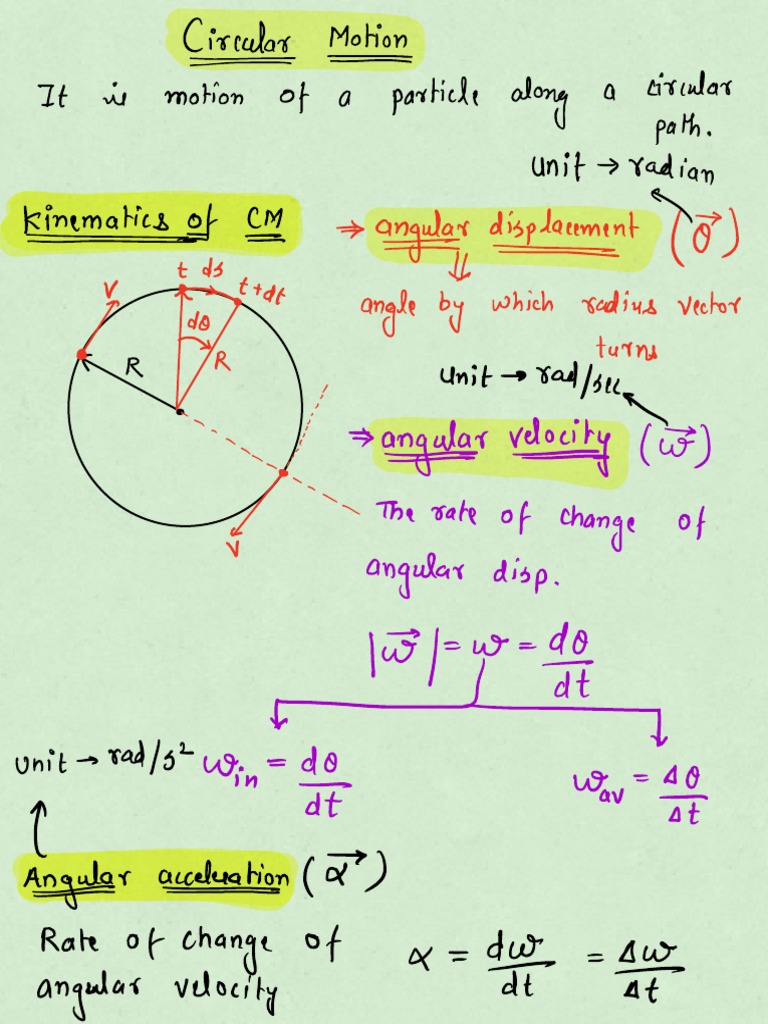 Circular Motion
It is motion of a particle along a circular
path.
Unit → radian
Kinematics of CM
⇒ angular displacement (θ⃗)
angle by which radius vector
turns
t ds t+dt
V
dθ
R
R
V
Unit → rad/sec
⇒ angular velocity (ω⃗)
The rate of change of
angular disp.
|ω⃗| = ω = dθ/dt
Unit → rad/s²
ωin = dθ/dt
ωav = Δθ/Δt
Angular acceleration (α⃗)
Rate of change of
angular velocity
α = dω/dt = Δω/Δt